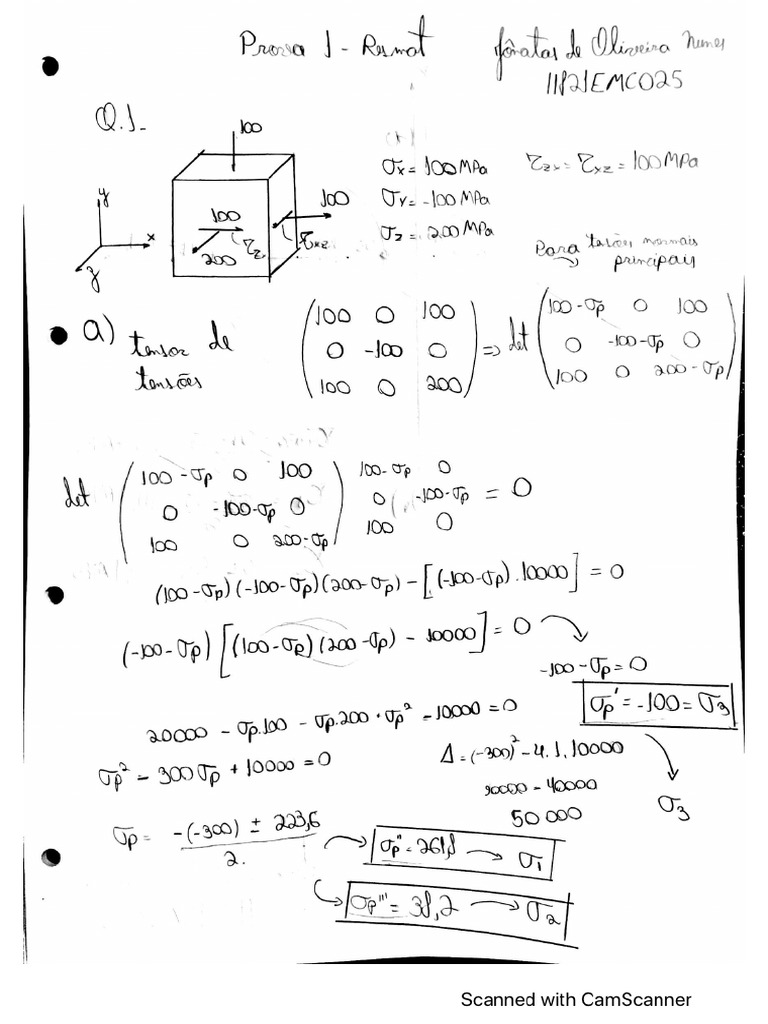 Prova 1 - Resmat Jônatas de Oliveira Nunes
11821EMC025
Q.1-
100
σx = 100MPa τzx = τxz = 100MPa
σy = -100MPa
σz = 200MPa
y
x
z
100
100
200
τxz
Para tensões normais
principais
a) tensor de
tensões
(100 0 100
0 -100 0
100 0 200) => det (100-σp 0 100
0 -100-σp 0
100 0 200-σp)
det (100-σp 0 100
0 -100-σp 0
100 0 200-σp) 100-σp 0
0 -100-σp = 0
100 0
(100-σp)(-100-σp)(200-σp) - [(-100-σp).10000] = 0
(-100-σp)[(100-σp)(200-σp) - 10000] = 0
-100-σp = 0
σp' = -100 = σ3
20000 - σp.100 - σp.200 + σp² - 10000 = 0
σp² - 300σp + 10000 = 0
Δ = (-300)² - 4.1.10000
90000 - 40000
50000
σ3
σp = -(-300) ± 223,6
2.
σp'' = 261,8 → σ1
σp''' = 38,2 → σ2
Scanned with CamScanner